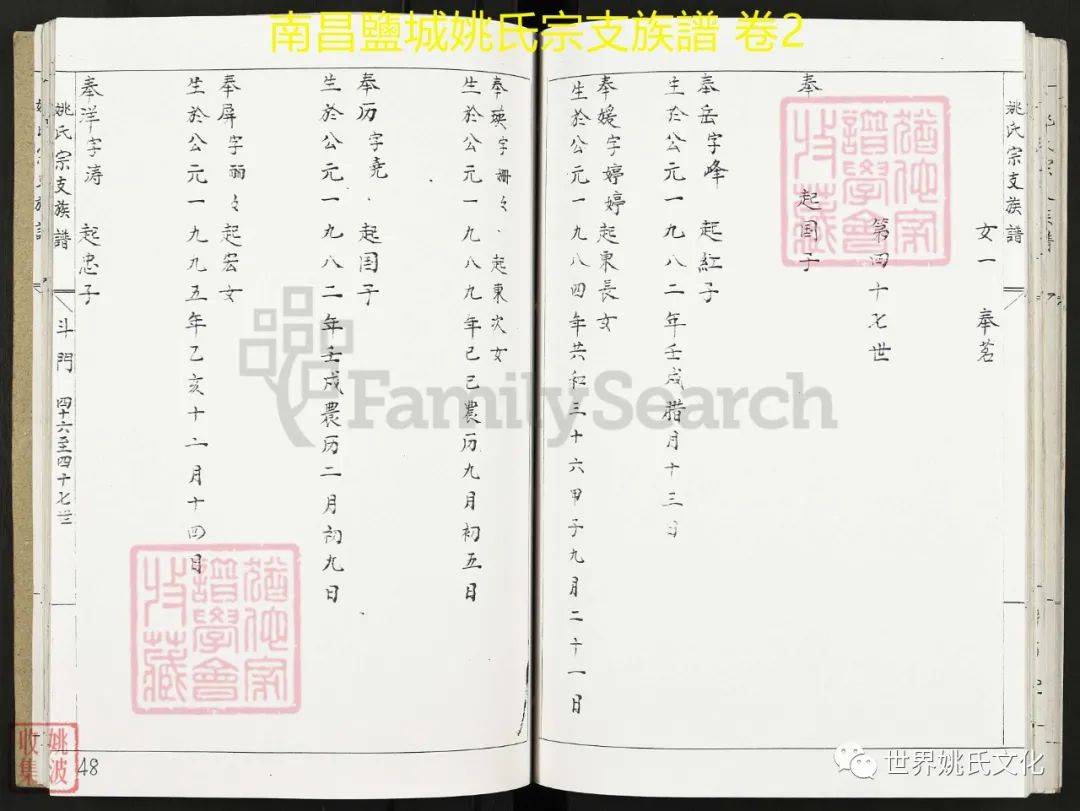 南昌鹽城姚氏宗支族譜 卷2
姚氏宗支族譜
女一 奉茗
第四十七世
奉 起国子
奉岳字峰 起紅子
生於公元一九八二年壬戌腊月十三日
奉媛字婷婷起東長女
生於公元一九八四年共和三十六甲子九月二十一日
奉瑛字姗々 起東次女
生於公元一九八九年己巳農历九月初五日
奉历字堯 起国子
生於公元一九八二年壬戌農历二月初九日
奉屏字丽々起宏女
生於公元一九九五年乙亥十二月十四日
奉洋字涛 起忠子
姚氏宗支族譜
斗門 四十六至四十七世
48
猶他家譜學會收藏
猶他家譜學會收藏
FamilySearch
姚波收集
世界姚氏文化